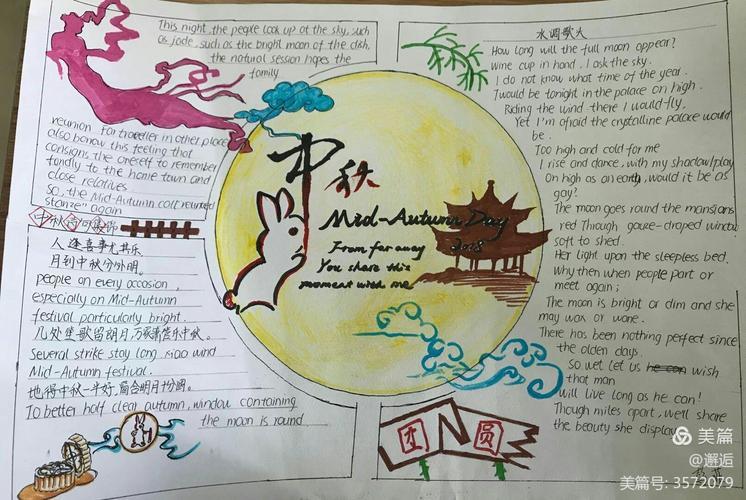 This night, the people look up at the sky, such
as jade, such as the bright moon of the dish,
the natural session hopes the
family
reunion. Far traveller in other place
also borrow this feeling that
consigns the oneself to remember
fondly to the home town and
close relatives
So, the Mid-Autumn call "reunited
stanza" again
人逢喜事尤其乐
月到中秋分外明。
people on every occasion,
especially on Mid-Autumn
festival particularly bright.
几处笙歌留朗月,万家萧管乐中秋。
Several strike stay long, xiao wind
Mid-Autumn festival.
地得中秋一半好,窗含明月十分圆。
To better half clear autumn, window containing
the moon is round
中秋
Mid-Autumn Day
2018
From far away
You share this
moment with me
水调歌头
How long will the full moon appear?
Wine cup in hand. I ask the sky.
I do not know what time of the year.
I would be tonight in the palace on high.
Riding the wind there I would fly,
Yet I'm afraid the crystalline palace would
be.
Too high and cold for me
I rise and dance, with my shadow play
On high as on earth, would it be as
gay?
The moon goes round the mansions
red Through gauze-draped window
soft to shed.
Her light upon the sleepless bed.
Why then when people part or
meet again;
The moon is bright or dim and she
may wax or wane.
There has been nothing perfect since
the olden days.
So wet let us he can wish
that man
will live long as he can!
Though miles apart, we'll share
the beauty she display
团圆
美篇
@邂逅
美篇号: 3572079